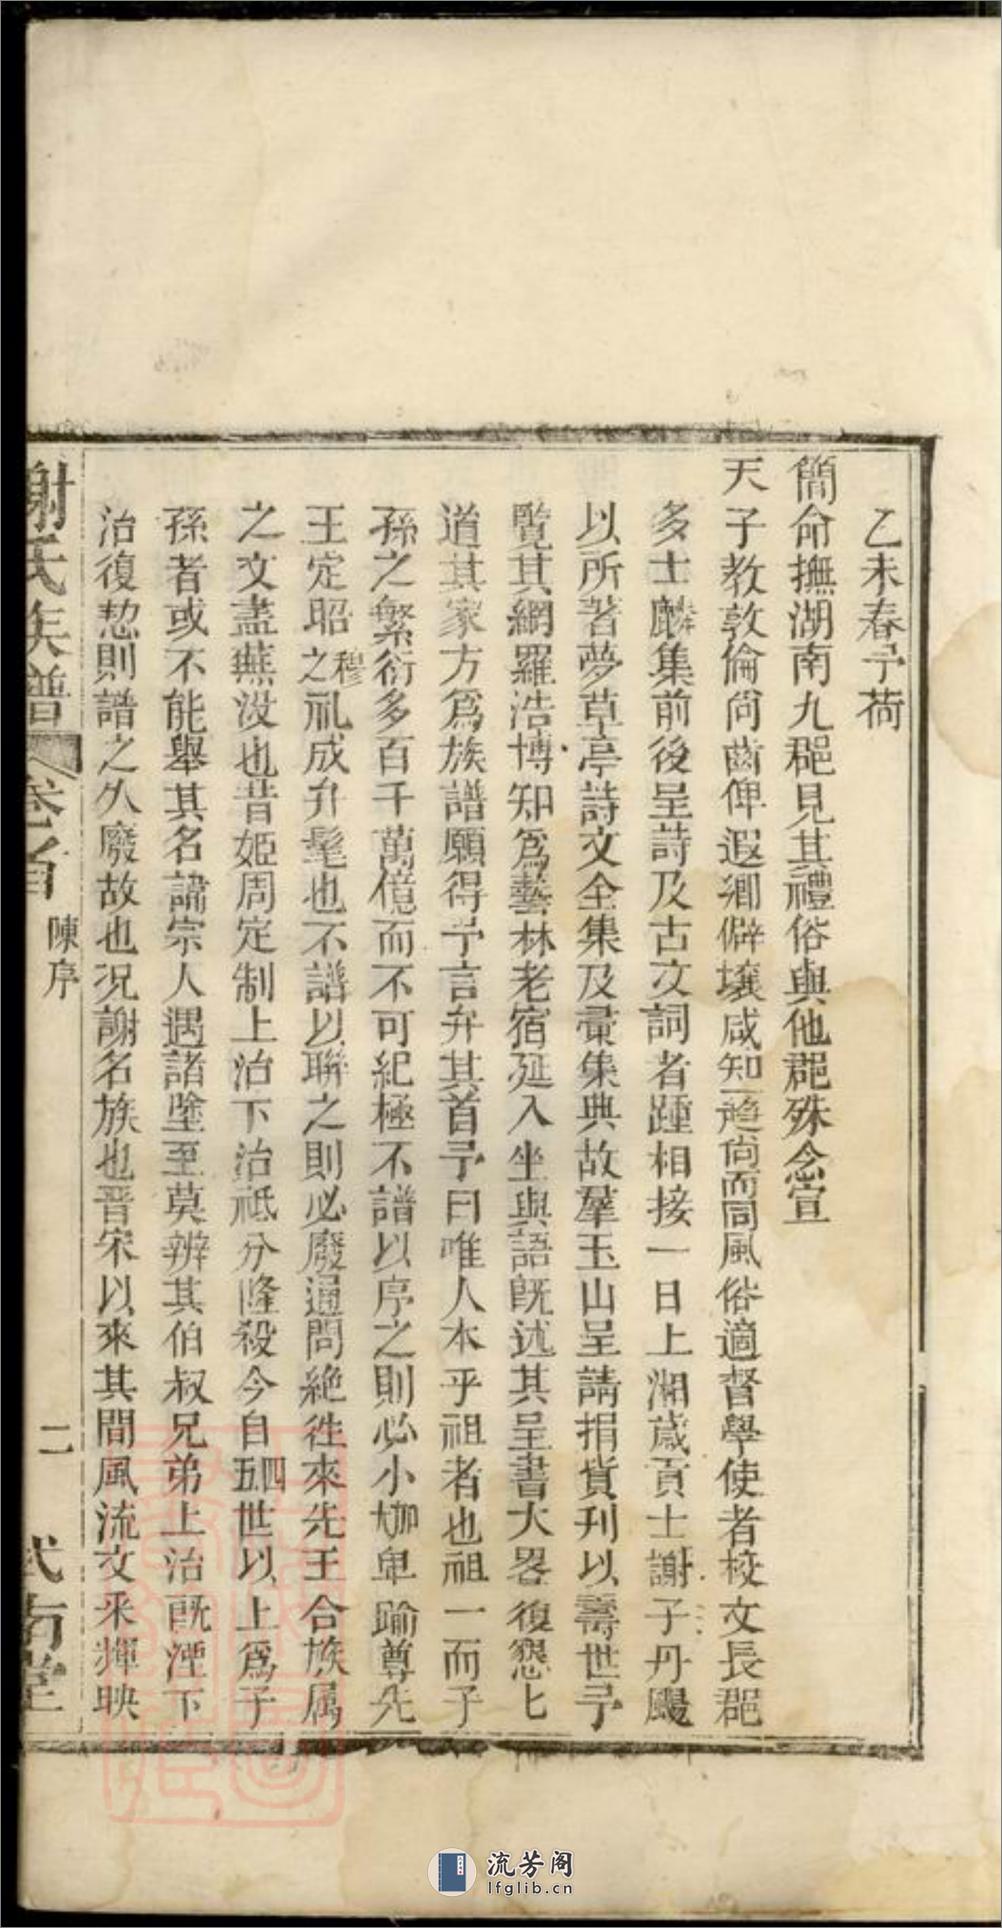 乙未春予荷
簡命撫湖南九郡見其禮俗與他郡殊念宣
天子教敦倫尙齒俾遐鄉僻壤咸知趨尙而同風俗適督學使者校文長郡
多士麟集前後呈詩及古文詞者踵相接一日上湘歲貢士謝子丹颺
以所著夢草亭詩文全集及彚集典故羣玉山呈請捐貲刊以壽世予
覽其網羅浩博知爲藝林老宿延入坐與語旣述其呈書大畧復懇乜
道其家方爲族譜願得予言弁其首予曰唯人本乎祖者也祖一而子
孫之繁衍多百千萬億而不可紀極不譜以序之則必小加大卑踰尊先
王定昭穆之礼成弁髦也不譜以聯之則必廢通問絶徃來先王合族属
之文盡蕪没也昔姬周定制上治下治祗分隆殺今自四五世以上爲子
孫者或不能舉其名諱宗人遇諸塗至莫辨其伯叔兄弟上治旣湮下
治復愆則譜之久廢故也况謝名族也晋宋以來其間風流文采輝映
謝氏族譜
卷首
陳序
二
式南堂
流芳阁
lfglib.cn